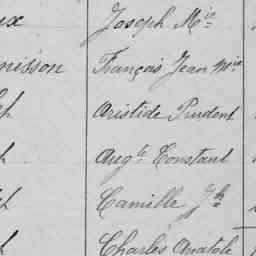 ux Joseph Mie
nisson François Jean Mie
ph Aristide Prudent
h Augte Constant
ph Camille Jh
Charles Anatole